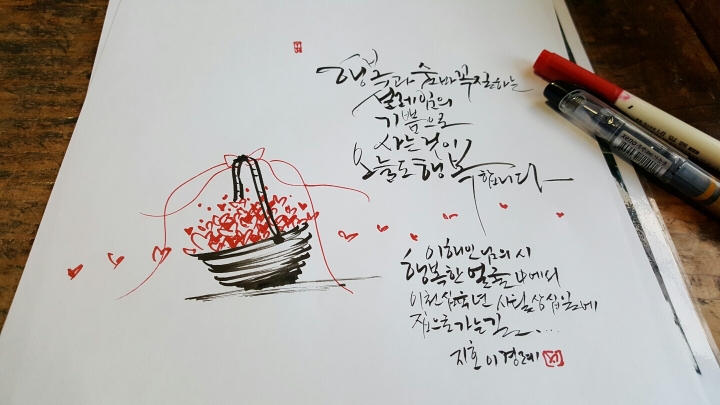 행복과 숨바꼭질하는
설레임의
기쁨으로
사는것이
오늘도 행복합니다
이해인님의 시
행복한 얼굴 中에서
이천십육년 사월 삼십일에
집으로가는길......
지호 이경례